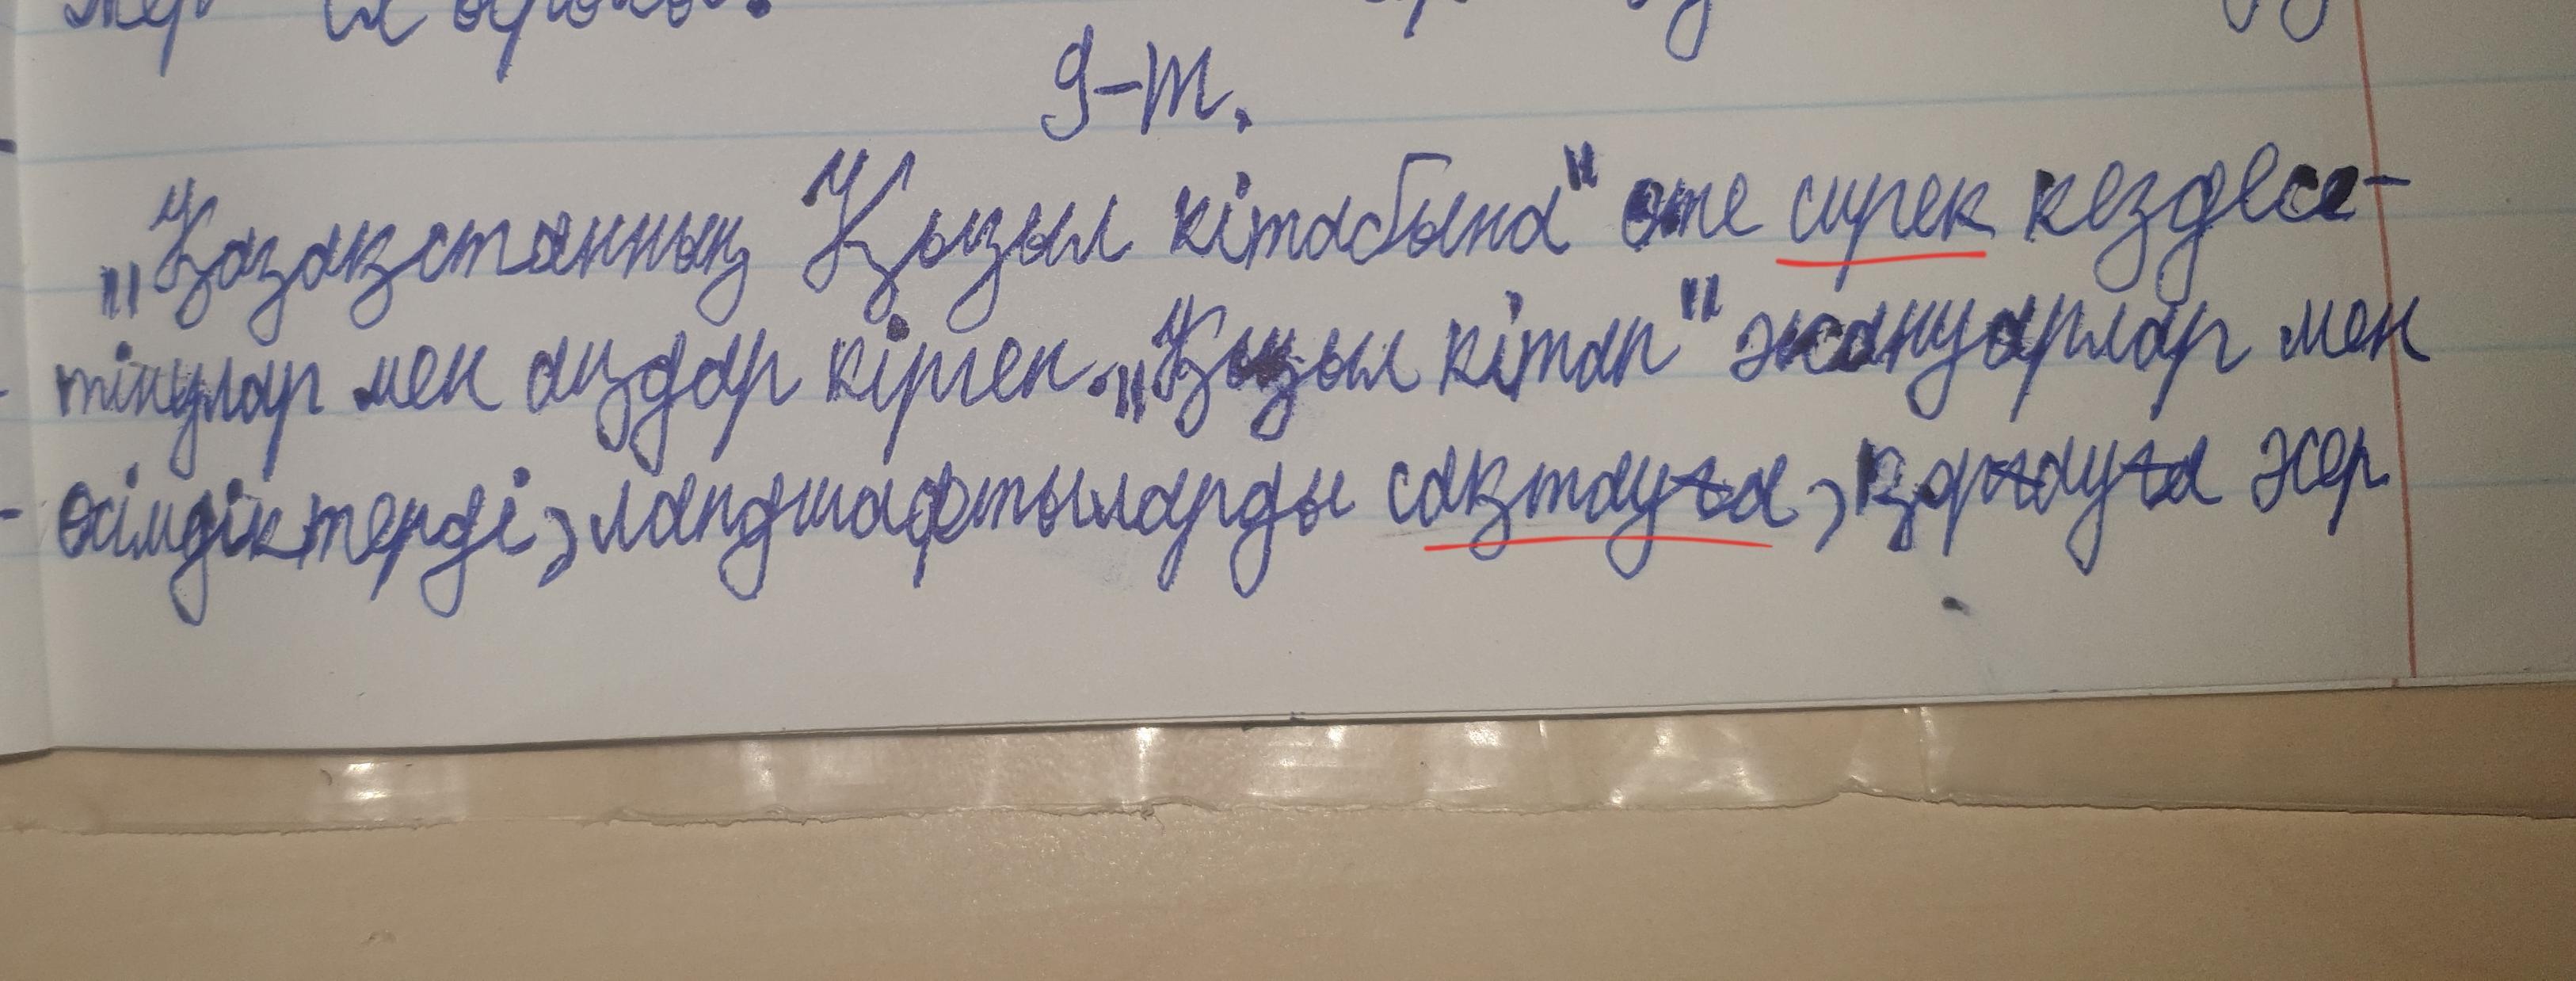 9-т.
„Қазақстанның Қызыл кітабына" өте сирек кездесе-
тінулар мен аңдар кірген. „Қызыл кітап" жануарлар мен
өсімдіктерді, ландшафтыларды сақтауға, қорғауға жер